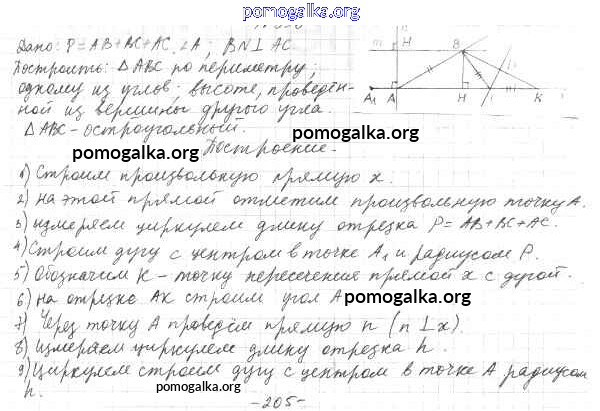 pomogalka.org
Дано: P = AB + BC + AC, ∠A; BN ⊥ AC
Построить: △ABC по периметру,
одному из углов; высоте, проведён-
ной из вершины другого угла.
△ABC - остроугольный.
m H B
A₁ A H C K
pomogalka.org
pomogalka.org
Построение.
1) Строим произвольную прямую x.
2) на этой прямой отметим произвольную точку A.
3) измеряем циркулем длину отрезка P = AB + BC + AC.
4) Строим дугу с центром в точке A₁ и радиусом P.
5) Обозначим K - точку пересечения прямой x с дугой.
6) на отрезке AK строим угол A
pomogalka.org
7) Через точку A проведём прямую n (n ⊥ x).
8) Измеряем циркулем длину отрезка h.
9) Циркулем строим дугу с центром в точке A радиусом
h.
pomogalka.org
-205-
pomogalka.org